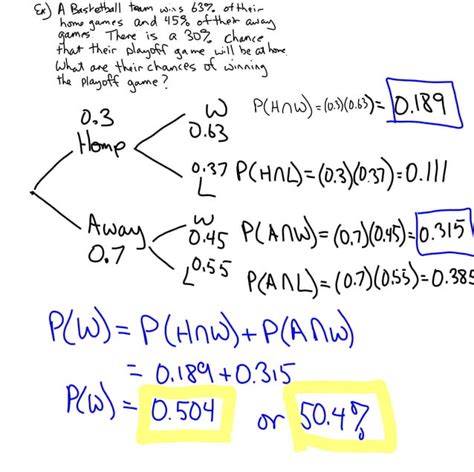 Ex) A Basketball team wins 63% of their
home games and 45% of their away
games. There is a 30% chance
that their playoff game will be at home.
What are their chances of winning
the playoff game?
0.3
Home
W
0.63
P(H∩W)=(0.3)(0.63)=0.189
0.37
L
P(H∩L)=(0.3)(0.37)=0.111
Away
0.7
W
0.45
P(A∩W)=(0.7)(0.45)=0.315
L 0.55
P(A∩L)=(0.7)(0.55)=0.385
P(W) = P(H∩W)+P(A∩W)
= 0.189+0.315
P(W) = 0.504 or 50.4%